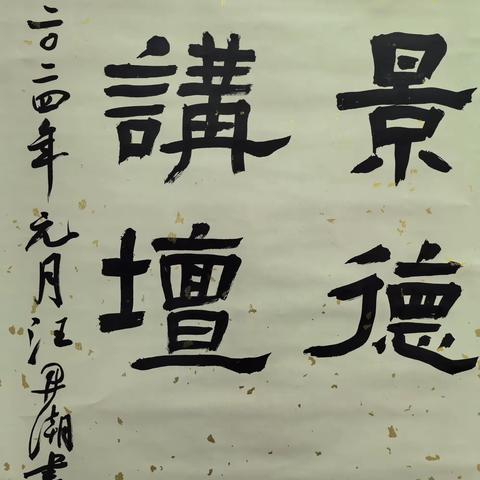 景德
講壇
二〇二四年元月汪丹潮書